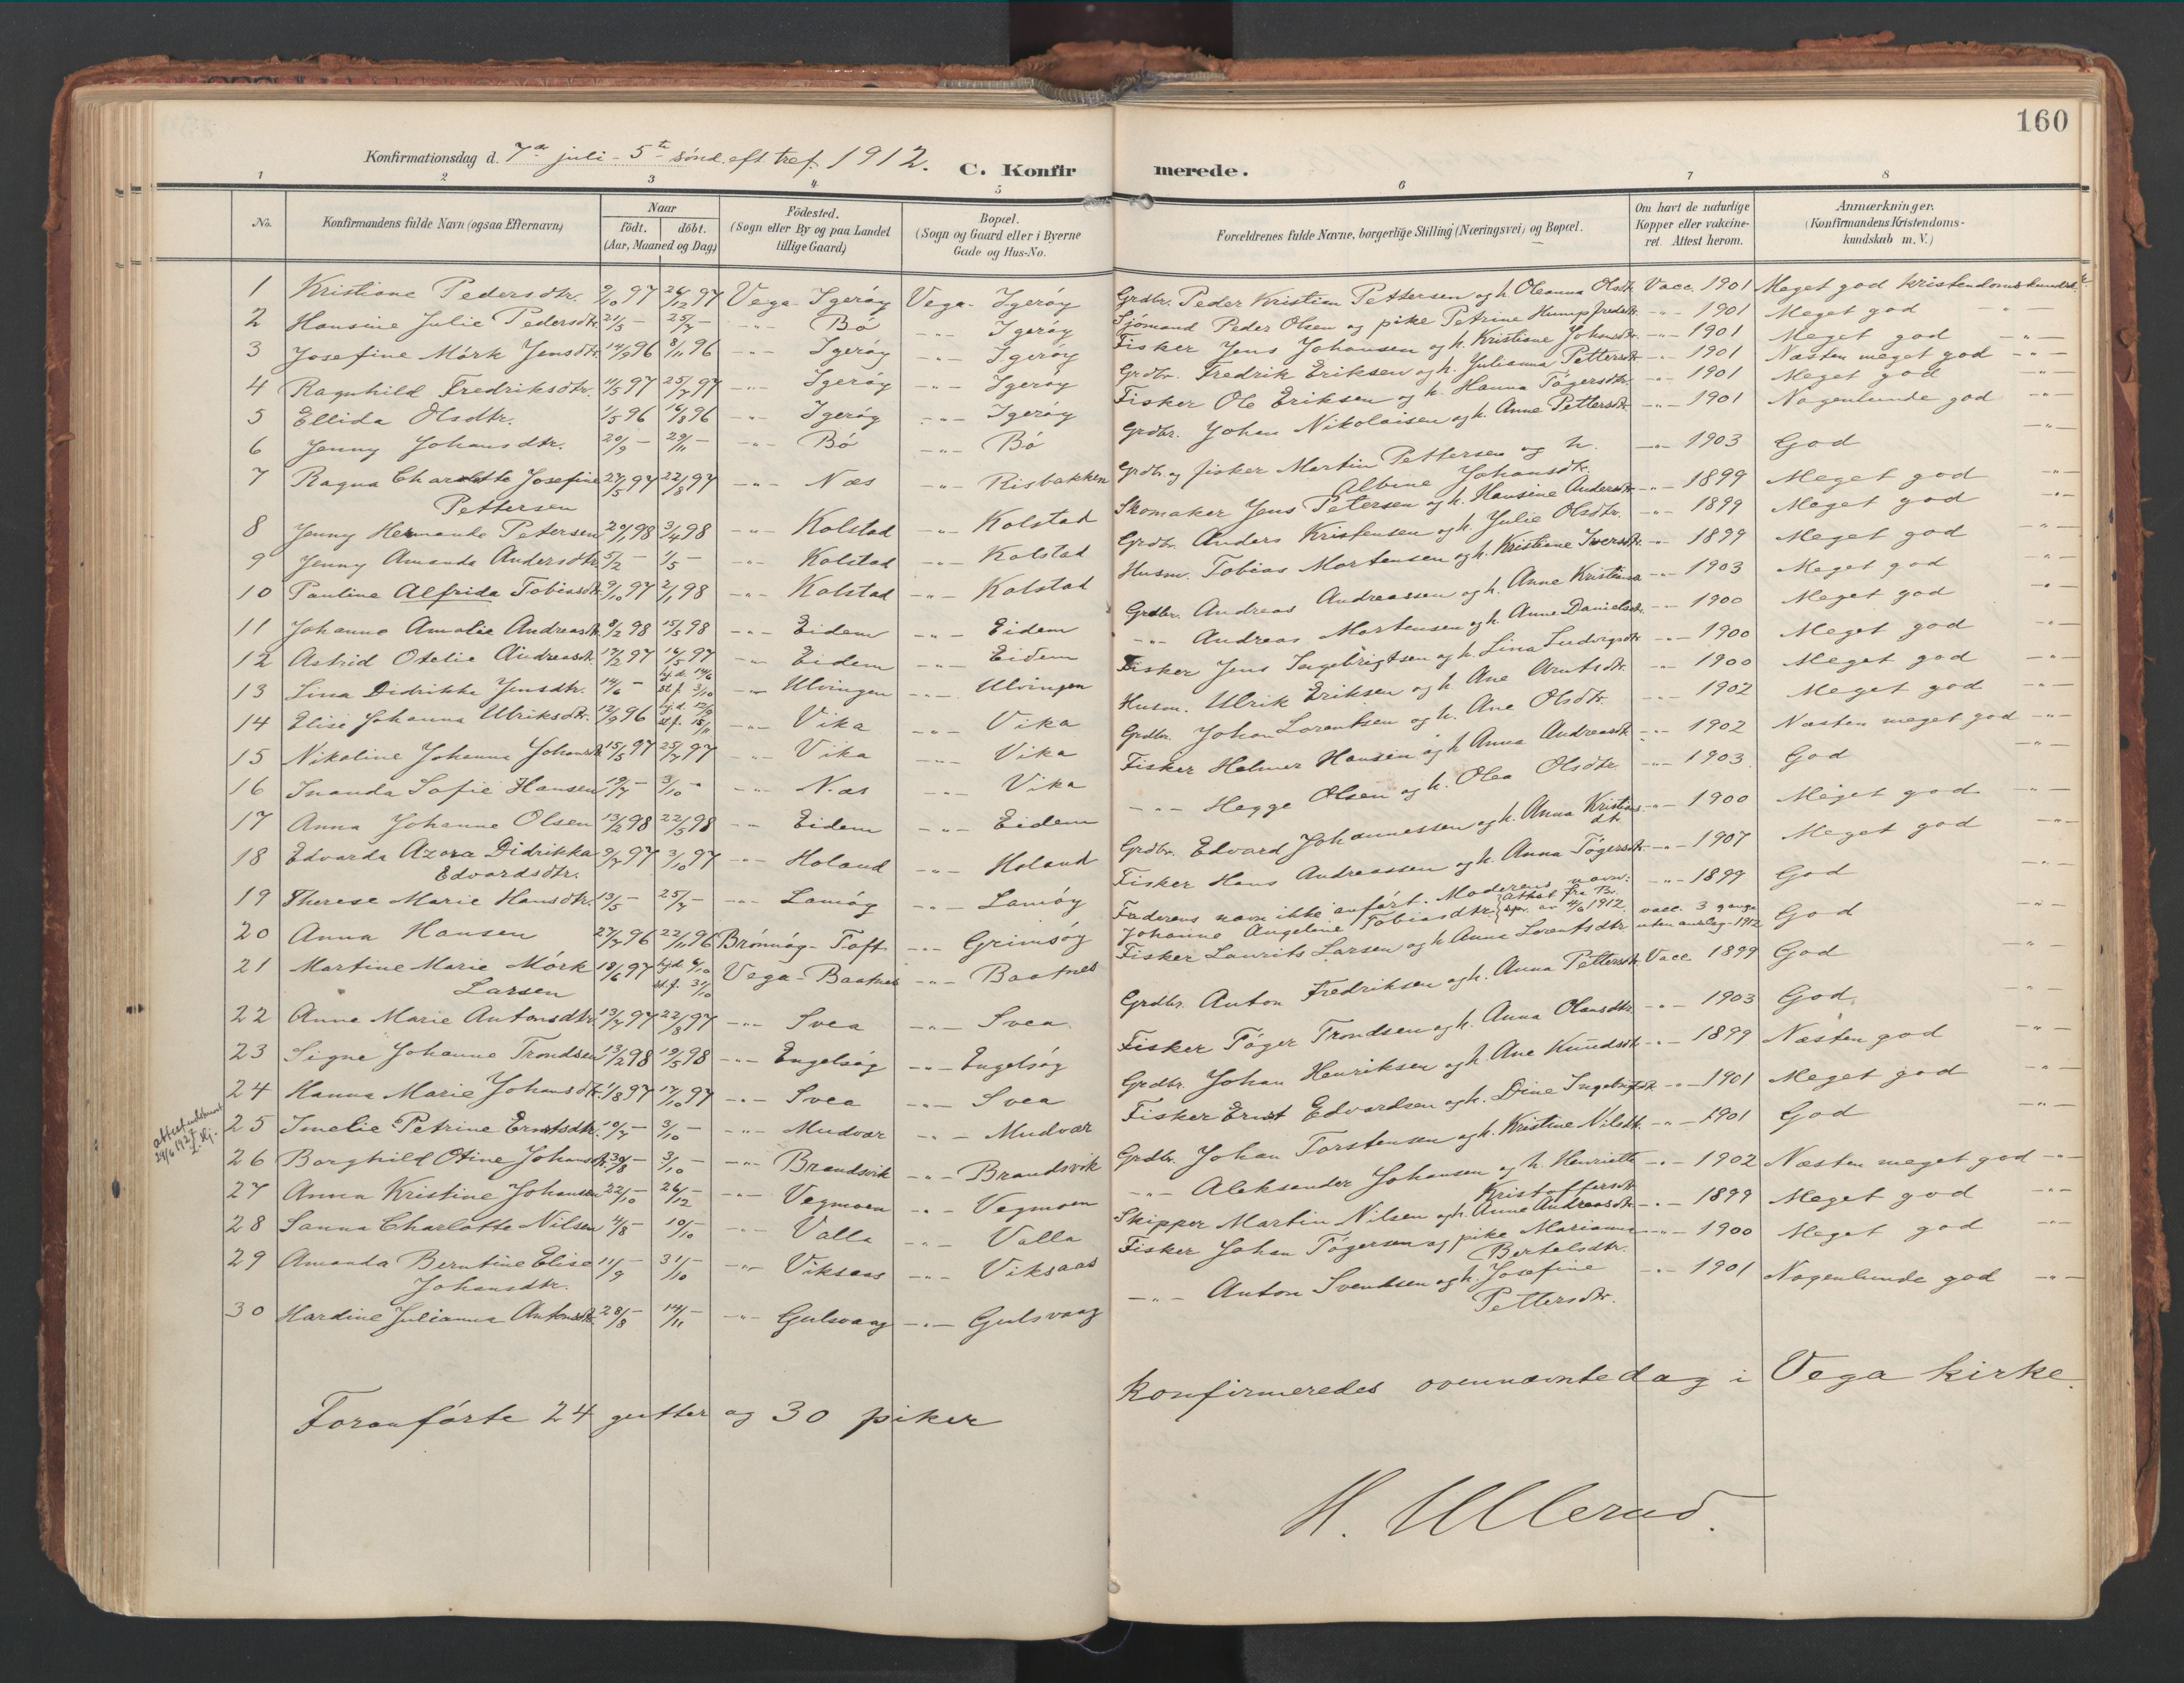 160
Konfirmationsdag d. 7de juli - 5te sønd. eft. tref. 1912. C. Konfirmerede.
1 2 3 4 5 6 7 8
No. Konfirmandens fulde Navn (ogsaa Efternavn) Naar født. døbt. (Aar, Maaned og Dag) Fødested. (Sogn eller By og paa Landet tillige Gaard) Bopæl. (Sogn og Gaard eller i Byerne Gade og Hus-No. Forældrenes fulde Navne, borgerlige Stilling (Næringsvei) og Bopæl. Om havt de naturlige Kopper eller vakcineret. Attest herom. Anmærkninger. (Konfirmandens Kristendomskundskab m. V.)
1 Kristiane Pedersdtr. 9/10 97 26/12 97 Vega - Igerøy Vega - Igerøy Grdbr. Peder Kristian Pettersen og h. Oleanna Olsdtr. Vacc. 1901 Meget god kristendomskundsk.
2 Hansine Julie Pedersdtr. 21/5 - 25/7 - -"- Bø -"- Igerøy Sjømand Peder Olsen og pike Petrine Hump Fredr. -"- 1901 Meget god -"-
3 Josefine Mørk Jensdtr. 14/9 96 8/11 96 -"- Igerøy -"- Igerøy Fisker Jens Johansen og h. Kristiane Johnsdtr. -"- 1901 Meget god -"-
4 Ragnhild Fredriksdtr. 11/5 97 25/7 97 -"- Igerøy -"- Igerøy Grdbr. Fredrik Eriksen og h. Julianna Pettersdtr. -"- 1901 Næsten meget god -"-
5 Ellida Olsdtr. 1/5 96 16/8 96 -"- Igerøy -"- Igerøy Fisker Ole Eriksen og h. Hanna Tøgersdtr. -"- 1901 Meget god -"-
6 Jenny Johansdtr. 20/9 - 29/11 - -"- Bø -"- Bø Grdbr. Johan Nikolaisen og h. Anne Pettersdtr. -"- 1901 Nogenlunde god -"-
7 Ragna Charlotte Josefine Pettersen 27/5 97 22/8 97 -"- Næs -"- Risbakken Grdbr. og fisker Martin Pettersen og h. Albine Johansdtr. -"- 1903 God -"-
8 Jenny Hermande Petersen 20/1 98 3/4 98 -"- Kolstad -"- Kolstad Skomaker Jens Petersen og h. Hansine Andersdtr. -"- 1899 Meget god -"-
9 Jenny Amanda Andersdtr. 5/2 - 1/5 - -"- Kolstad -"- Kolstad Grdbr. Anders Kristensen og h. Julie Olsdtr. -"- 1899 Meget god -"-
10 Pauline Alfrida Tobiasdtr. 9/10 97 2/1 98 -"- Kolstad -"- Kolstad Husm. Tobias Mortensen og h. Kristiane Iversdtr. -"- 1899 Meget god -"-
11 Johanne Amalie Andreasdtr. 8/2 98 15/5 98 -"- Eidem -"- Eidem Grdbr. Andreas Andreassen og h. Anne Kristiansd. -"- 1903 Meget god -"-
12 Astrid Otelie Andreasdtr. 17/2 97 16/5 97 -"- Eidem -"- Eidem -"- Andreas Mortensen og h. Anne Danielsdtr. -"- 1900 Meget god -"-
13 Lina Didrikke Jensdtr. 14/6 - hj.d. 14/6 st.f. 3/10 -"- Ulvingen -"- Ulvingen Fisker Jens Ingebrigtsen og h. Lina Ludvigsdtr. -"- 1900 Meget god -"-
14 Elise Johanna Ulriksdtr. 12/9 96 hj.d. 12/9 st.f. 15/11 -"- Vika -"- Vika Husm. Ulrik Eriksen og h. Ane Arntsdtr. -"- 1900 Meget god -"-
15 Nikoline Johanna Johansdtr. 15/5 97 25/7 97 -"- Vika -"- Vika Grdbr. Johan Lorentsen og h. Ane Olsdtr. -"- 1902 Meget god -"-
16 Inanda Sofie Hansen 19/7 - 3/10 - -"- Næs -"- Vika Fisker Helmer Hansen og h. Anna Andreasdtr. -"- 1902 Næsten meget god -"-
17 Anna Johanne Olsen 13/2 98 22/5 98 -"- Eidem -"- Eidem -"- Hegge Olsen og h. Olea Olsdtr. -"- 1903 God -"-
18 Edvarda Azora Didrikka Edvardsdtr. 9/7 97 3/10 97 -"- Holand -"- Holand Grdbr. Edvard Johannessen og h. Anna Kristians dtr. -"- 1900 Meget god -"-
19 Therese Marie Hansdtr. 13/5 - 25/7 - -"- Lamøy -"- Lamøy Fisker Hans Andreassen og h. Anna Tøgersdtr. -"- 1907 Meget god -"-
20 Anna Hansen 27/7 96 22/11 96 Brønnøy - Toft -"- Grimsøy Faderens navn ikke anført. Moderens navn: Johanne Angeline Tobiasdtr. } attest fra Br. spr. av 4/6 1912 -"- 1899 God -"-
21 Martine Marie Mørk Larsen 18/6 97 hj.d. 6/10 st.f. 31/10 Vega - Baatnes -"- Baatnes Fisker Laurits Larsen og h. Anna Lorentsdtr. vacc. 3 gange uten anslag 1912 God
22 Anne Marie Antonsdtr. 13/7 97 22/8 97 -"- Svea -"- Svea Grdbr. Anton Fredriksen og h. Anna Pettersdtr. Vacc 1899 God -"-
23 Signe Johanne Trondsen 13/2 98 19/5 98 -"- Engelsøy -"- Engelsøy Fisker Tøger Trondsen og h. Anna Olausdtr. -"- 1903 God -"-
24 Hanna Marie Johansdtr. 1/8 97 17/10 97 -"- Svea -"- Svea Grdbr. Johan Henriksen og h. Ane Knudsdtr. -"- 1899 Næsten god -"-
attest utskrevet 29/6 1927
25 Imelie Petrine Ernstsdtr. 10/7 - 3/10 - -"- Mudvær -"- Mudvær Fisker Ernst Edvardsen og h. Dine Ingebrigtsdtr. -"- 1901 Meget god -"-
26 Borghild Otine Johansdtr. 30/8 - 3/10 - -"- Brandsvik -"- Brandsvik Grdbr. Johan Torstensen og h. Kristine Nilsdtr. -"- 1901 God -"-
27 Anna Kristine Johansen 22/10 - 26/12 - -"- Vegmoen -"- Vegmoen -"- Aleksander Johansen og h. Henriette Kristoffersdtr. -"- 1902 Næsten meget god -"-
28 Sanna Charlotte Nilsen 4/8 - 10/10 - -"- Valla -"- Valla Skipper Martin Nilsen og h. Anne Andreasdtr. -"- 1899 Meget god -"-
29 Amanda Berntine Elise Johansdtr. 11/9 - 31/10 - -"- Viksaas -"- Viksaas Fisker Johan Tøgersen og pike Marianna Bertelsdtr. -"- 1900 Meget god -"-
30 Hardine Julianna Antonsdtr. 28/8 - 14/11 - -"- Gulsvaag -"- Gulsvaag -"- Anton Svendsen og h. Josefine Pettersdtr. -"- 1901 Nogenlunde god -"-
Foranførte 24 gutter og 30 piker konfirmeredes ovennævnte dag i Vega kirke.
H. Ullerud.